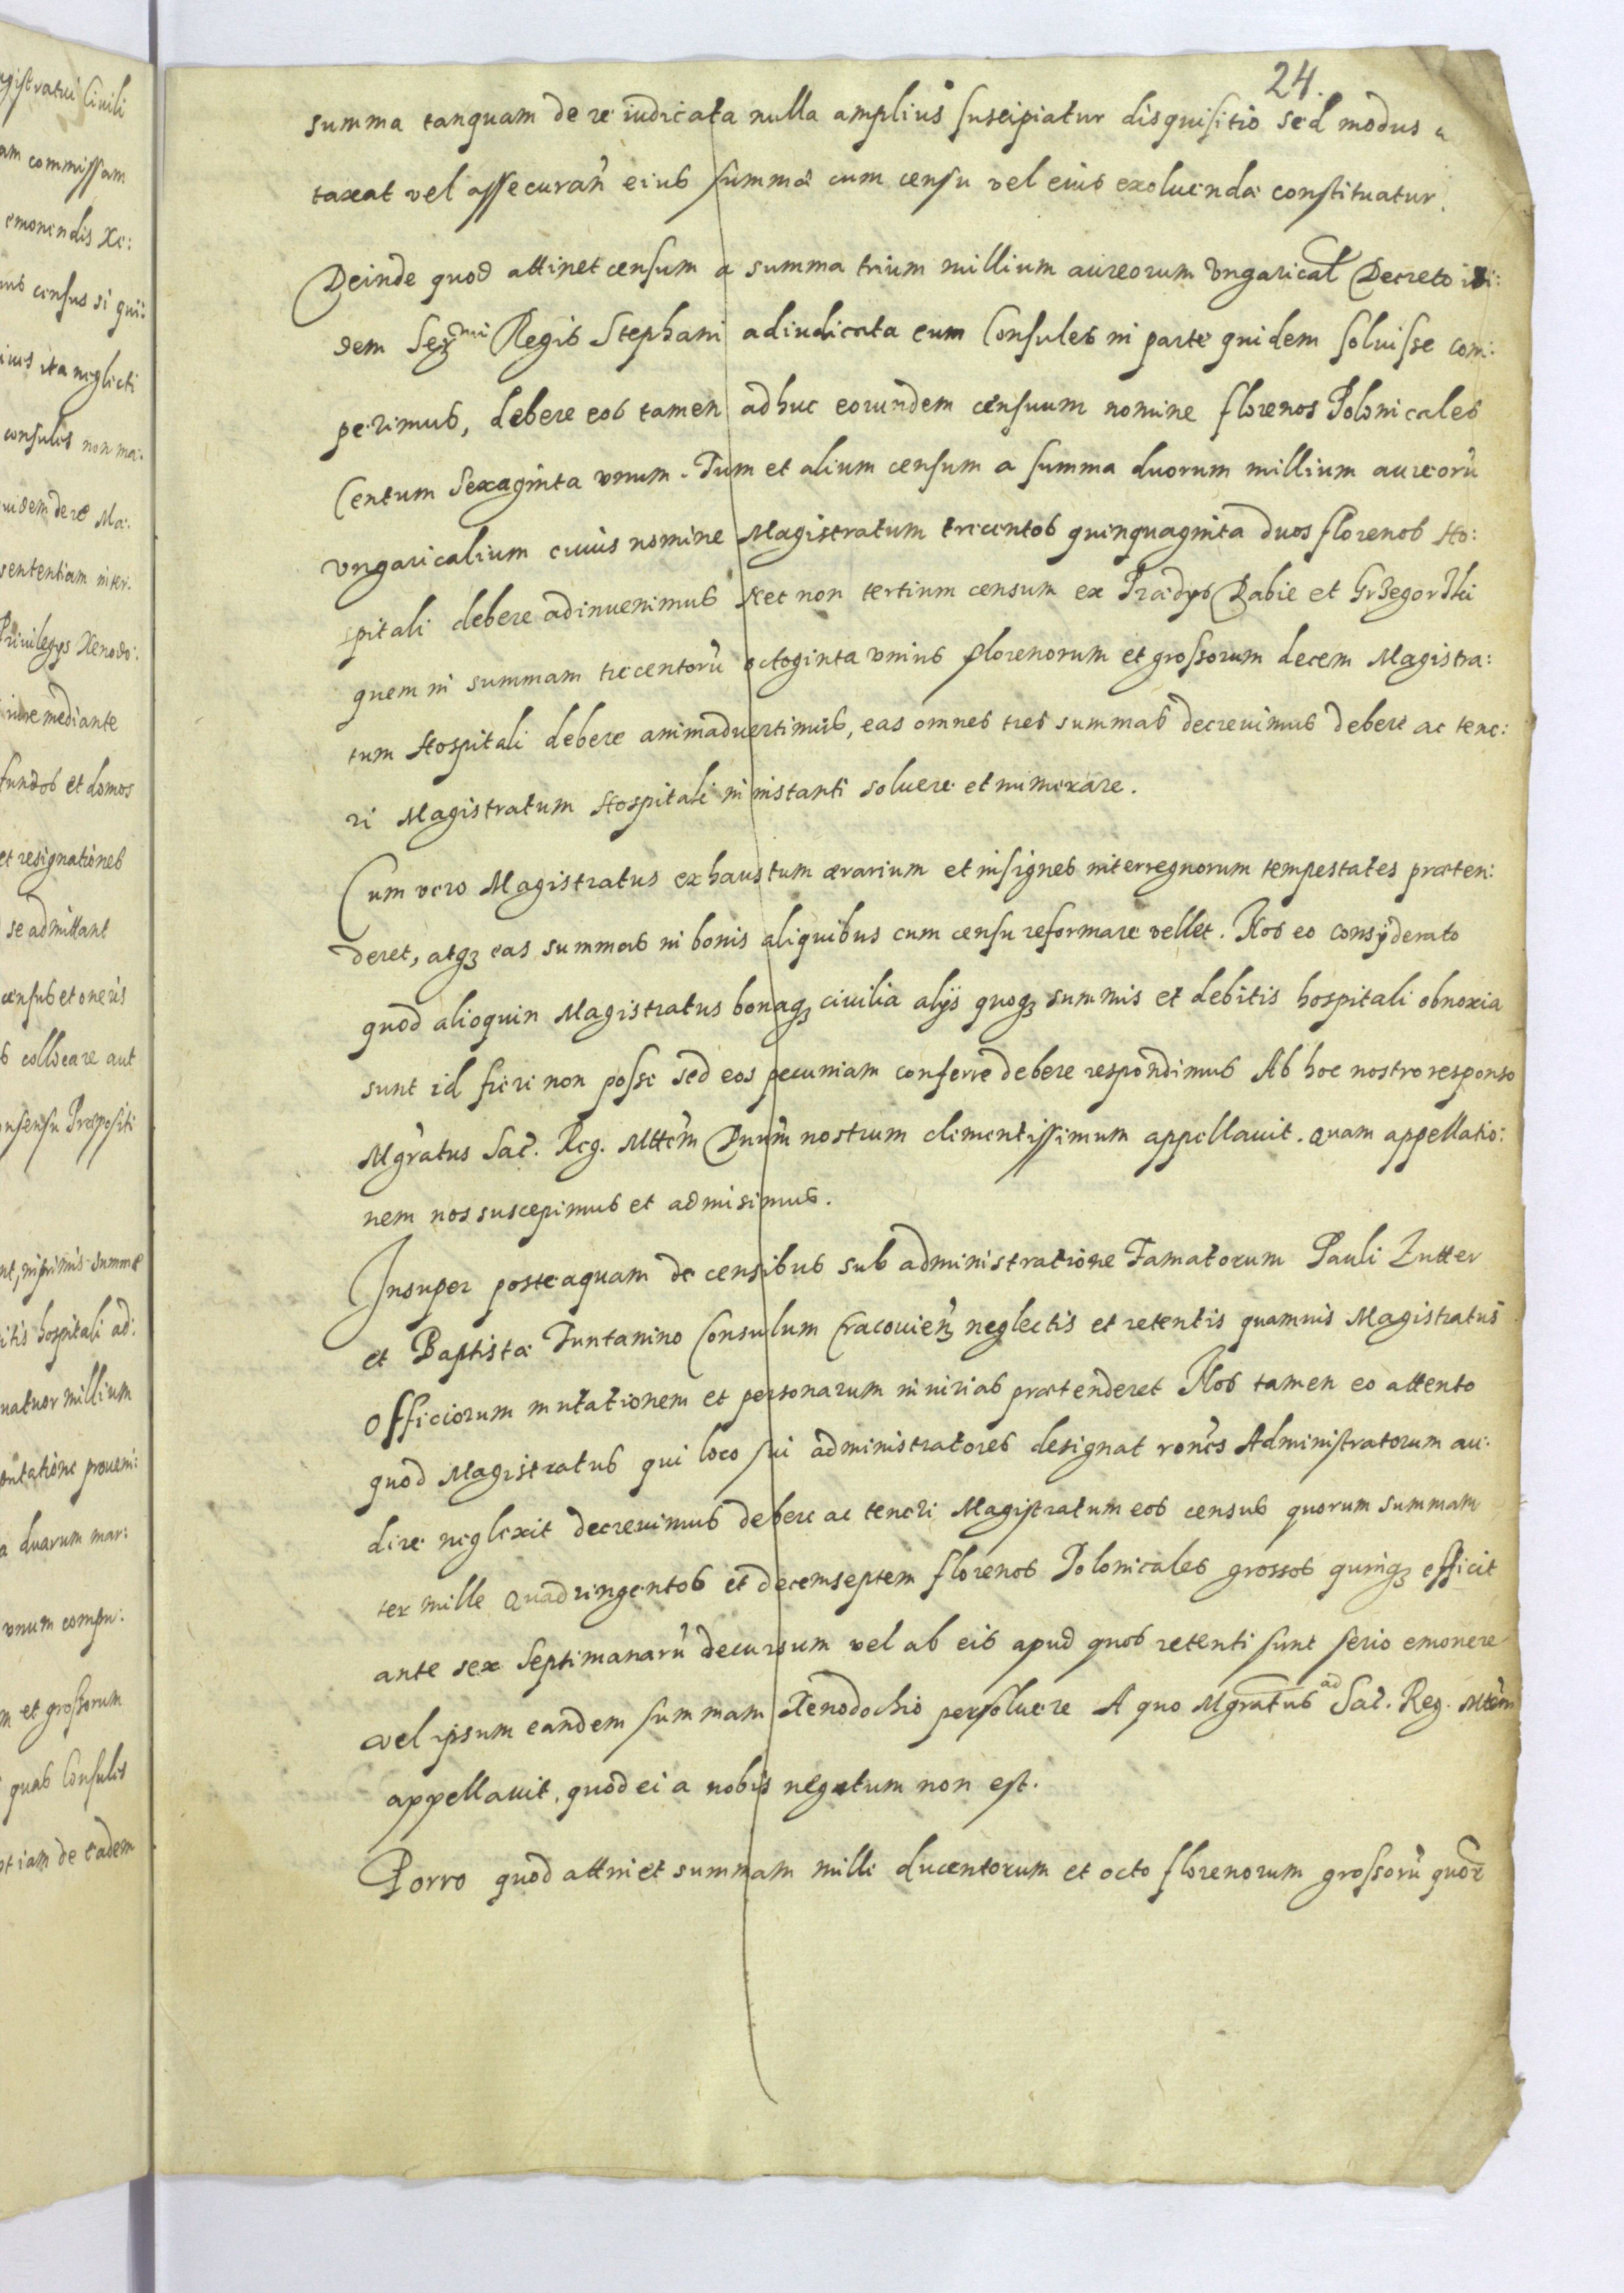 24.
summa tanquam de re iudicata nulla amplius suscipiatur disquisitio sed modus
taxat vel assecurań eius summæ cum censu vel eius exoluendæ constituatur.
Deinde quod attinet censum a summa trium millium aureorum Vngarical Decreto
dem Sermi Regis Stephani adiudicata eum Consules in parte quidem soluisse com:
perimus, debere eos tamen adhuc eorundem censuum nomine florenos Polonicales
Centum Sexaginta vnum. Tum et alium censum a summa duorum millium aureorũ
vngaricalium cuius nomine Magistratum trecentos quinquaginta duos florenos Ho:
spitali debere adinuenimus nec non tertium censum ex Prædijs Dabie et Grzegorzki
quem in summam trecentorũ octoginta vnius florenorum et grossorum decem Magistra:
tum Hospitali debere animaduertimus, eas omnes tres summas decreuimus debere ac tene:
ri Magistratum Hospitali in instanti soluere et numerare.
Cum vero Magistratus exhaustum ærarium et insignes interregnorum tempestates præten:
deret, atq3 eas summas in bonis aliquibus cum censu reformare vellet. Nos eo consÿderato
quod alioquin Magistratus bonaq3 ciuilia alijs quoq3 summis et debitis hospitali obnoxia
sunt id fieri non posse sed eos pecuniam conferre debere respondimus Ab hoc nostro responso
Mgr̃atus Sac̃. Reg. Mttem̃ Dnũm nostrum clementissimum appellauit. quam appellatio:
nem nos suscepimus et admisimus.
Insuper posteaquam de censibus sub administratione Famatorum Pauli Zutter
et Baptistæ Funtanino Consulum Cracouień neglectis et retentis quamuis Magistratus
officiorum mutationem et personarum iniurias prætenderet Nos tamen eo attento
quod Magistratus qui loco sui administratores designat ronẽs Administratorum au:
dire neglexit decreuimus debere ac teneri Magistratum eos census quorum summam
ter mille quadringentos et decemseptem florenos Polonicales grossos quinq3 efficit
ante sex septimanarũ decursum vel ab eis apud quos retenti sunt serio emonere
vel ipsum eandem summam Xenodochio persoluere A quo Mgratus ad Sac̃. Reg. Mttem̃
appellauit, quod ei a nobis negatum non est.
Porro quod attinet summam mille ducentorum et octo florenorum grossorũ quor